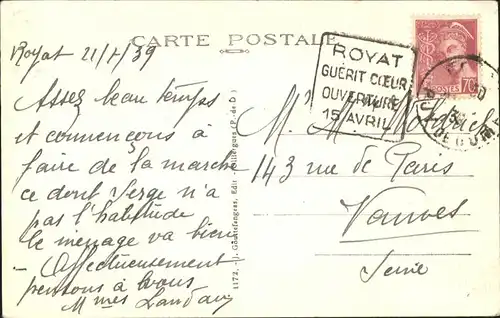 CARTE POSTALE
Royat 21/7/39
Assez beau temps
et commençons à
faire de la marche
ce dont Serge n'a
pas l'habitude
le menage va bien
Affectueusement
pensons à vous
Mmes Landau
ROYAT
GUÉRIT CŒUR
OUVERTURE
15 AVRIL
POSTES 70c
PUY DE DOME
M. M.
143 rue de Paris
Vanves
Seine